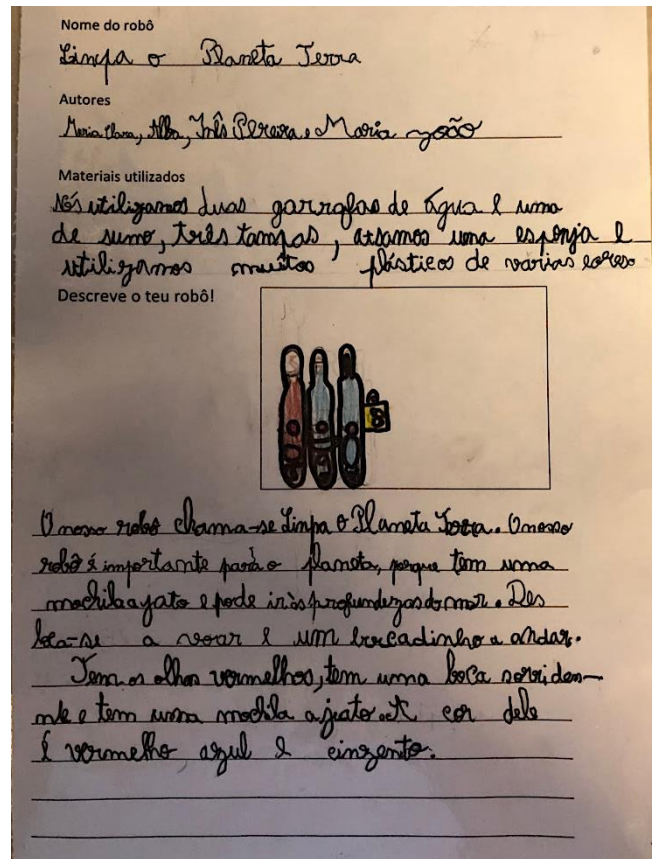 Nome do robô
Limpa o Planeta Terra
Autores
Maria Clara, Alba, Inês Pereira e Maria João
Materiais utilizados
Nós utilizamos duas garrafas de água e uma
de sumo, três tampas, usamos uma esponja e
utilizamos muitos plásticos de varias cores
Descreve o teu robô!
O nosso robô chama-se Limpa o Planeta Terra. O nosso
robô é importante para o planeta, porque tem uma
mochila a jato e pode ir às profundezas do mar. Des
loca-se a voar e um bocadinho a andar.
Tem os olhos vermelhos, tem uma boca sorriden-
nte e tem uma mochila a jato. A cor dele
é vermelho azul e cinzento.